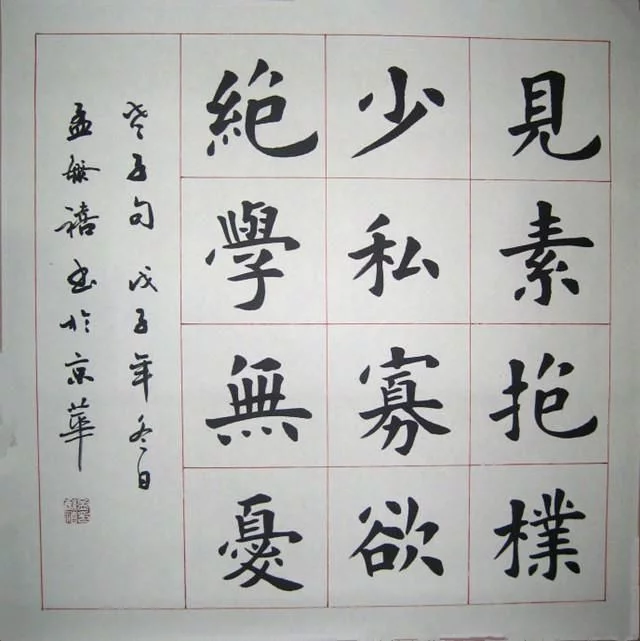 見素抱樸
少私寡欲
絕學無憂
老子句 戊子年冬日
孟繁禧書於京華